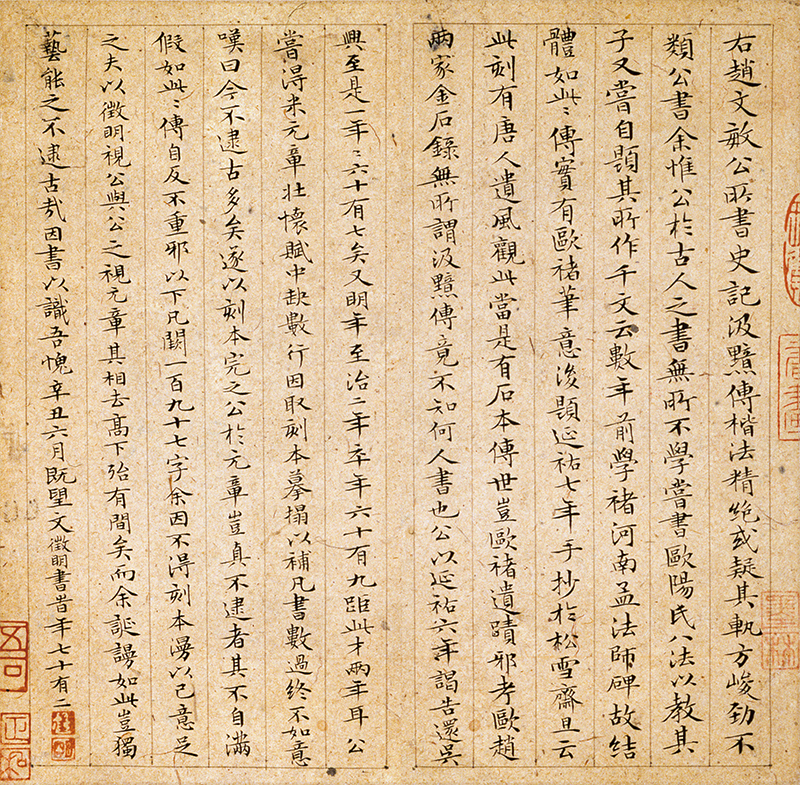 右趙文敏公所書史記汲黯傳楷法精絕或疑其軌方峻勁不
類公書余惟公於古人之書無所不學嘗書歐陽氏八法以教其
子又嘗自題其所作千文云數年前學褚河南孟法師碑故結
體如此此傳實有歐褚筆意後題延祐七年手抄於松雪齋且云
此刻有唐人遺風觀此當是有石本傳世豈歐褚遺蹟邪考歐趙
兩家金石錄無所謂汲黯傳竟不知何人書也公以延祐六年謁告還吳
興至是一年年六十有七矣又明年至治二年卒年六十有九距此才兩年耳公
嘗得米元章壯懷賦中缺數行因取刻本摹搨以補凡書數過終不如意
嘆曰今不逮古多矣遂以刻本完之公於元章豈真不逮者其不自滿
假如此此傳自反不重邪以下凡闕一百九十七字余因不得刻本漫以己意足
之夫以徵明視公與公之視元章其相去高下殆有間矣而余誕謾如此豈獨
藝能之不逮古哉因書以識吾愧辛丑六月既望文徵明書旹年七十有二